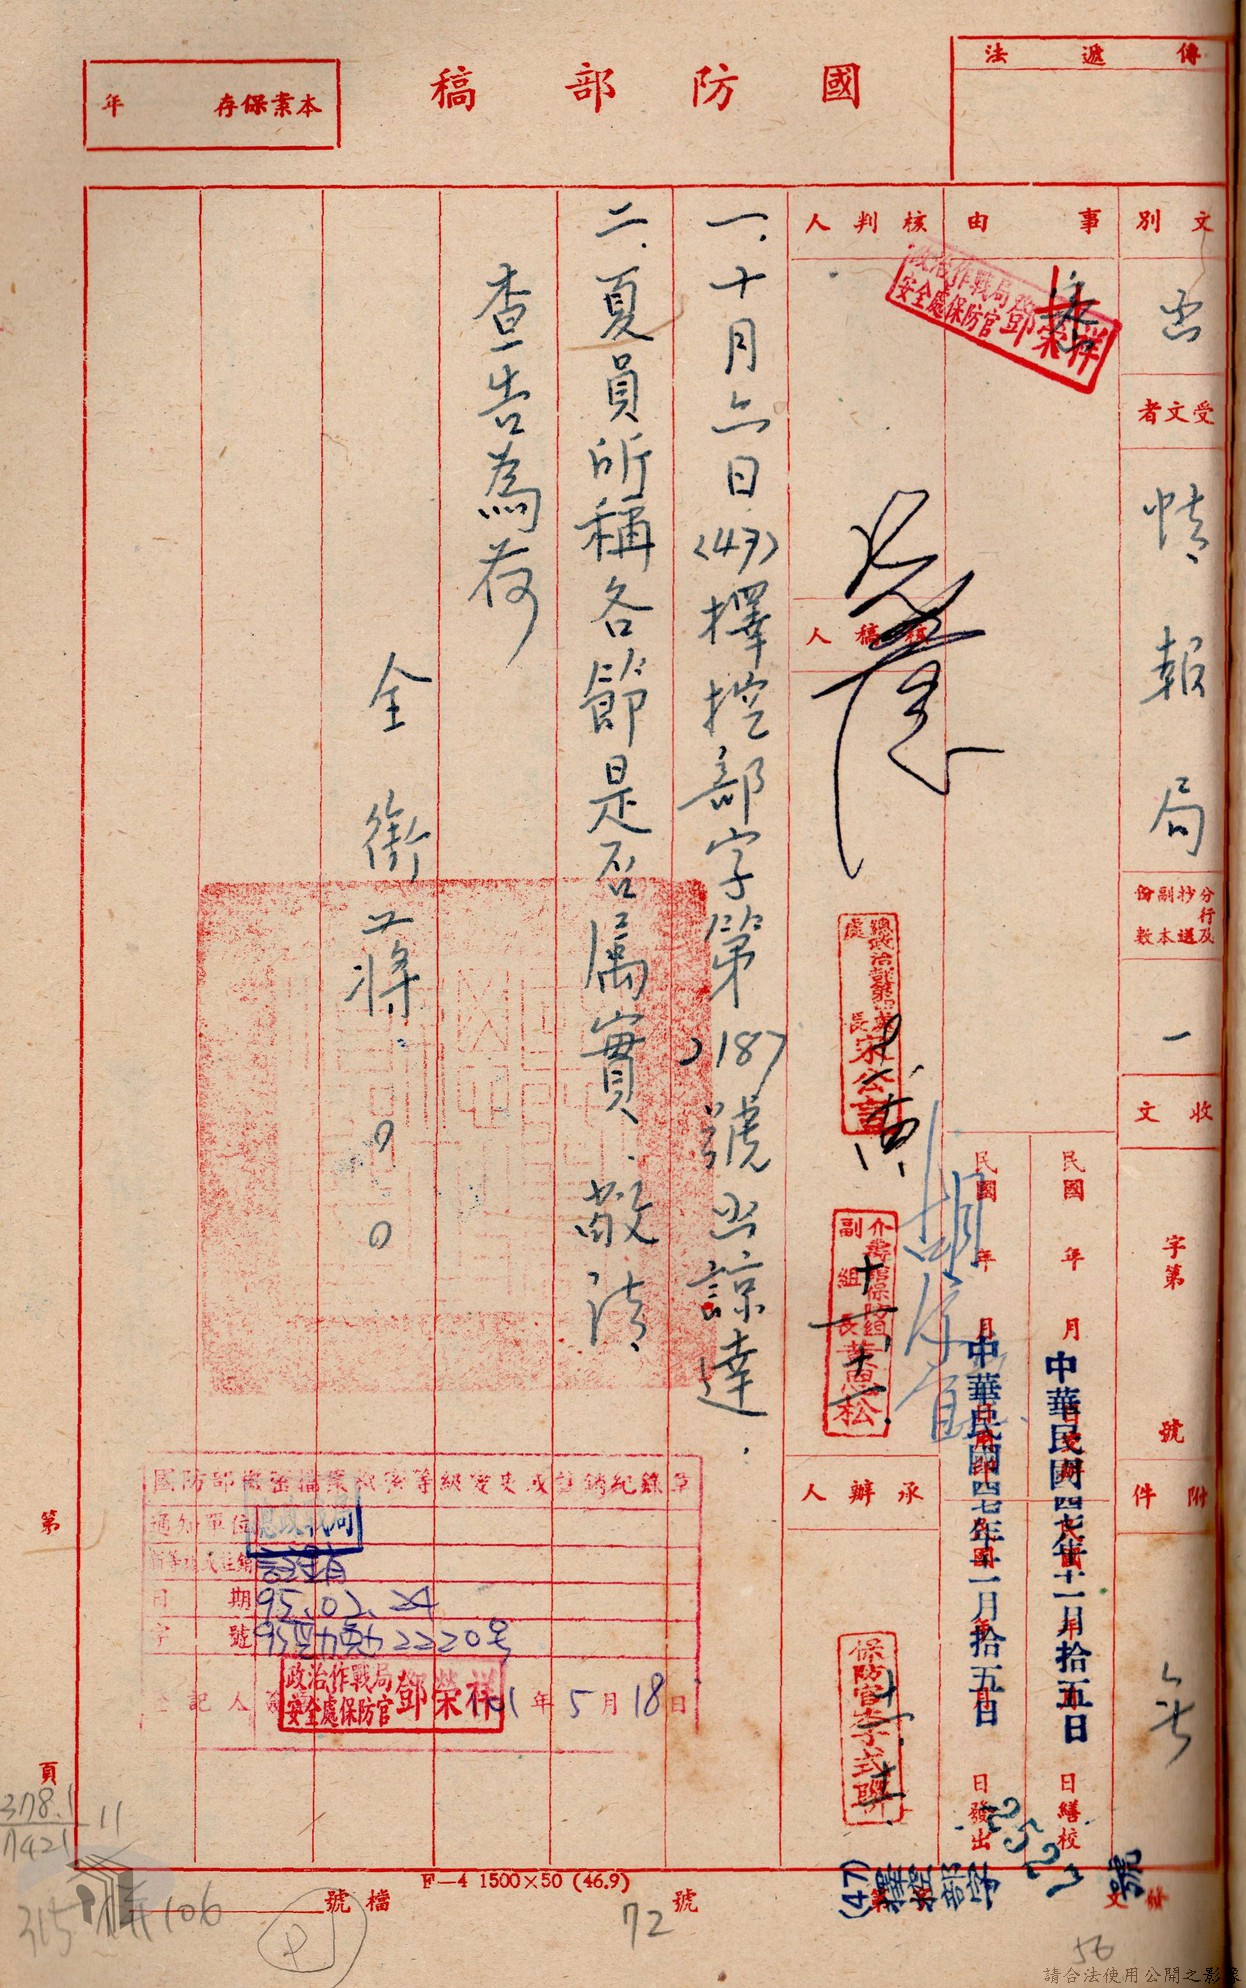 國防部稿
傳遞法
本案保存 年
文別
函
受文者
情報局
分行及抄送副本份數
一
收文
字第 號
附件
無
事由
核判人
核稿人
承辦人
一、十月六日(47)擇控部字第2187號函諒達.
二、夏員所稱各節是否屬實.敬請
查告為荷
全銜 蔣○○
政治作戰局
安全處保防官 鄧榮祥
總政治部第四處
處長 宋公言
介壽館保防組
副組長 黃惠松
胡
保防官 李式聯
民國 年 月 日繕校
中華民國四七年十一月拾五日
民國 年 月 日發出
中華民國四七年十一月拾五日
(47)擇控部字第2527號
國防部機密檔案機密等級變更或註銷紀錄章
通知單位 總政戰局
新等級或註銷 註銷
日期 95.02.24
字號
登記人
政治作戰局
安全處保防官 鄧榮祥
101年5月18日
第 頁
378.1
7421
11
F—4 1500×50 (46.9)
檔號
號
315
106
72
56
請合法使用公開之影像